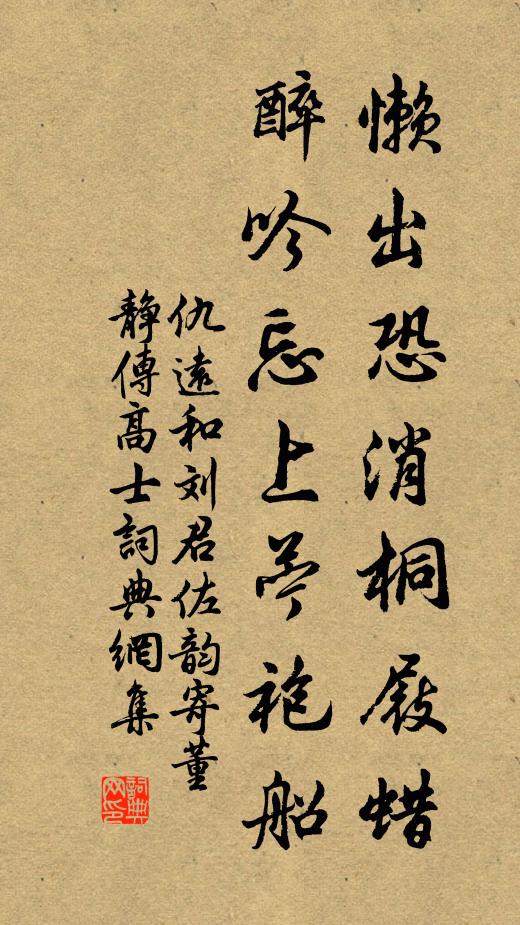 懒出恐消桐屐蜡
醉吟忘上苧袍船
仇遠和刘君佐韵寄董
静傳高士詞典網集
詞典
网印